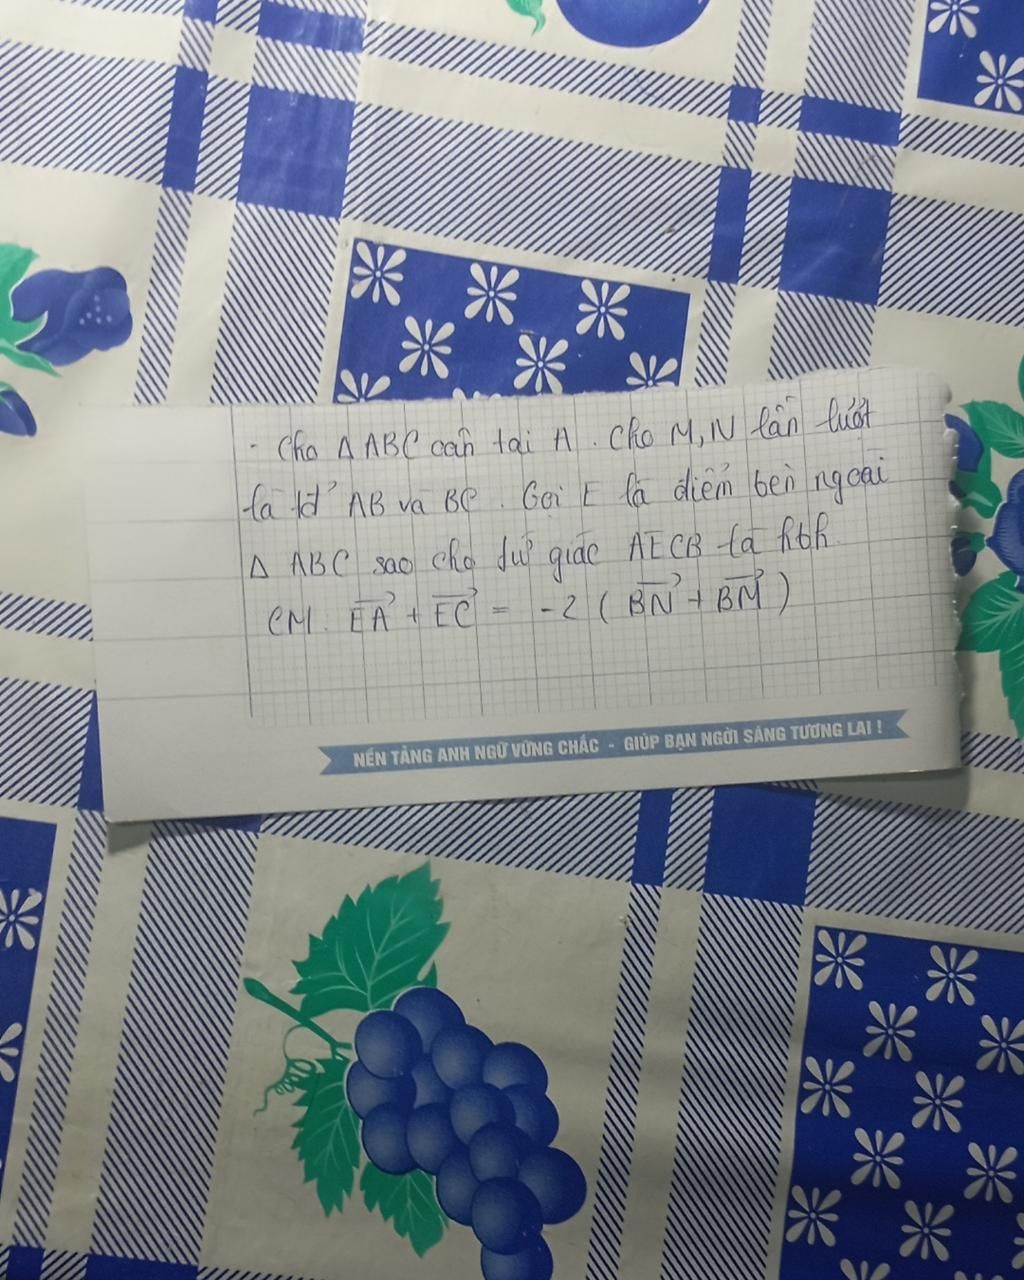 - Cho Δ ABC cân tại A. Cho M, N lần lượt
là tđ AB và BC. Gọi E là điểm bên ngoài
Δ ABC sao cho tứ giác AECB là hbh.
CM: \overrightarrow{EA} + \overrightarrow{EC} = -2 (\overrightarrow{BN} + \overrightarrow{BM})
NỀN TẢNG ANH NGỮ VỮNG CHẮC - GIÚP BẠN NGỜI SÁNG TƯƠNG LAI !